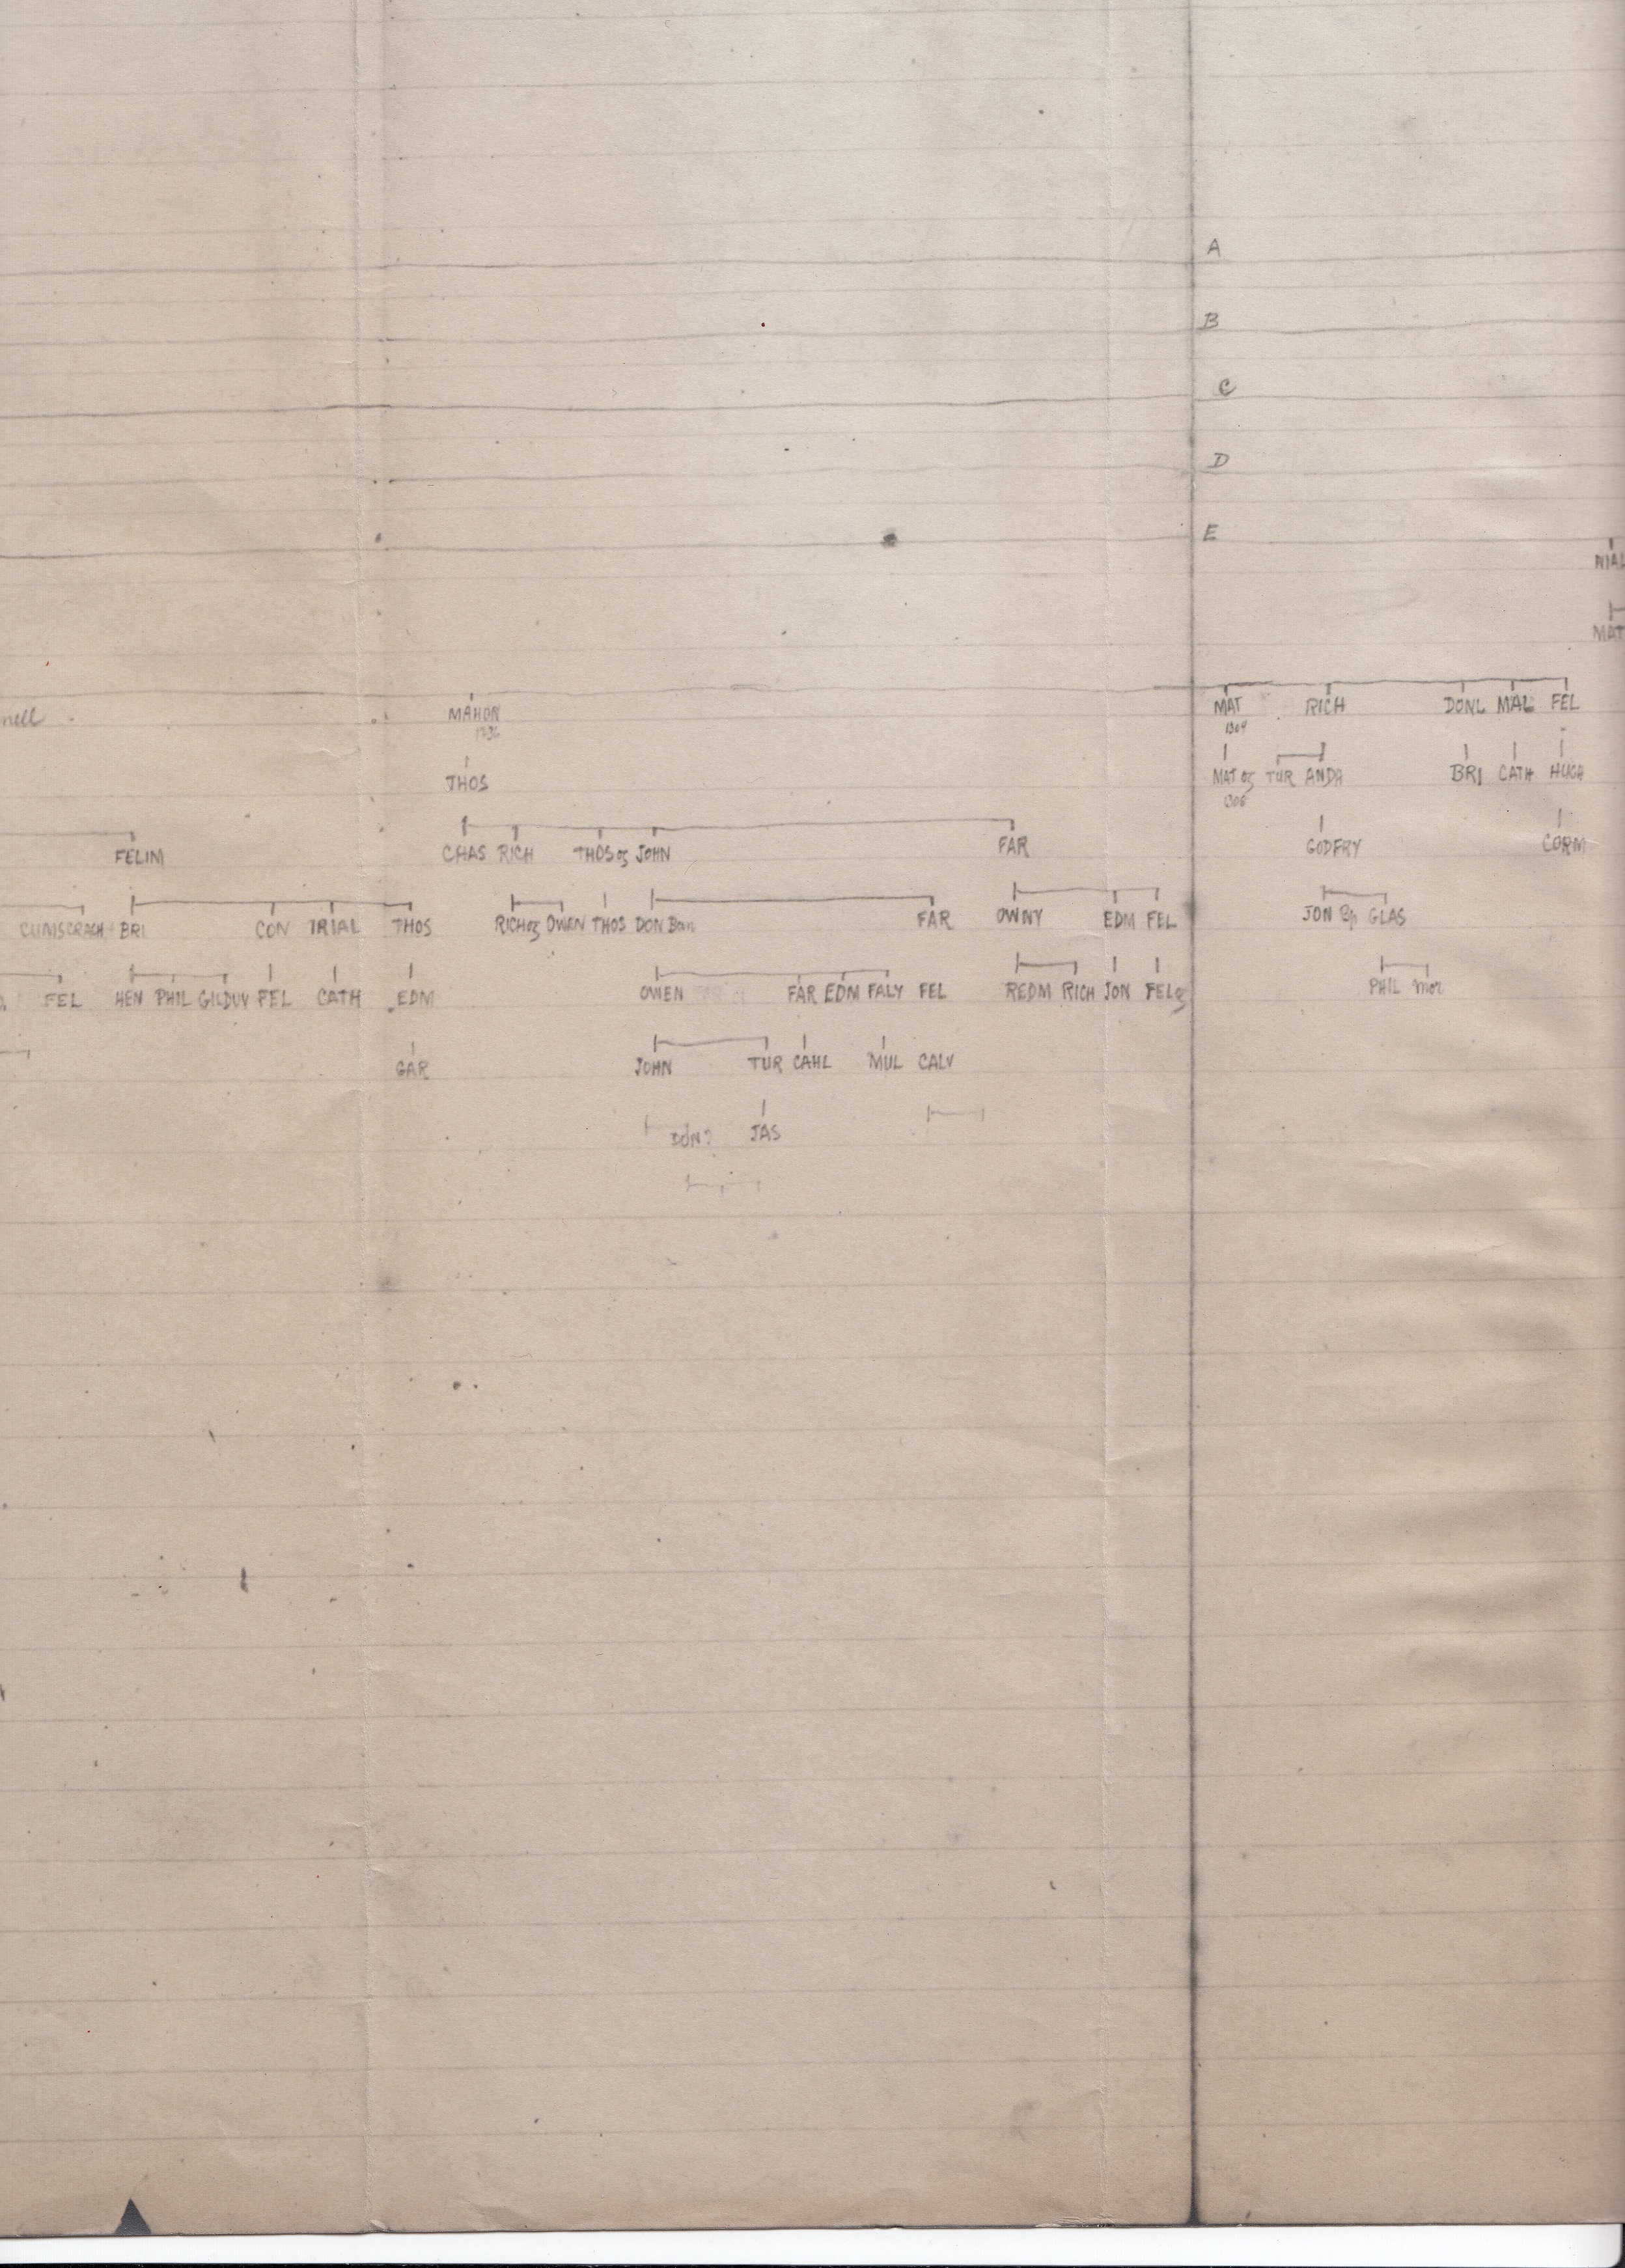 A
B
C
D
E
MAT
MAHON MAT RICH DONL MAL FEL
1304
THOS MAT og TUR ANDA BRI CATH HUGH
1306
FELIM CHAS RICH THOS og JOHN FAR GODFRY CORM
BRI CON IRIAL THOS RICH og OWEN THOS DON Ban FAR OWNY EDM FEL JON Bp GLAS
FEL HEN PHIL GILDUV FEL CATH EDM OWEN FAR EDM FALY FEL REDM RICH JON FEL og PHIL mor
GAR JOHN TUR CAHL MUL CALV
DON? JAS